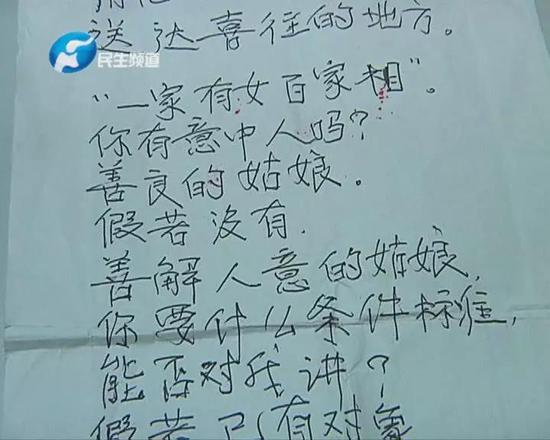 民生频道
送达喜往的地方。
“一家有女百家相”。
你有意中人吗?
善良的姑娘。
假若没有.
善解人意的姑娘,
你要什么条件标准,
能否对我讲?
假若已有对象